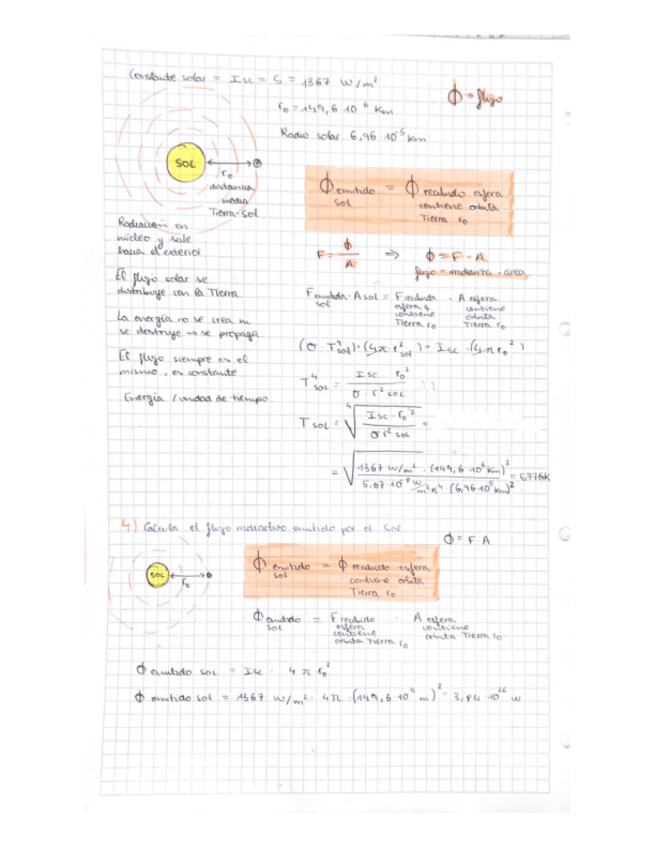 Constante solar = Isc = S = 1367 W/m²
ϕ = flujo
r₀ = 149,6·10⁶ Km
Radio solar 6,96·10⁵ km
SOL
r₀
distancia
media
Tierra-Sol
ϕ emitido sol = ϕ recibido esfera contiene órbita Tierra r₀
Radiación en
núcleo y sale
hacia el exterior.
F = ϕ / A ⇒ ϕ = F · A
flujo = irradianza · área
El flujo solar se
distribuye con la Tierra
F emitida sol · A sol = F recibida esfera q contiene Tierra r₀ · A esfera contiene órbita Tierra r₀
La energía no se crea ni
se destruye → se propaga.
(σ · T⁴sol) · (4π r²sol) = Isc · (4π r₀²)
El flujo siempre es el
mismo, es constante
T⁴sol = Isc · r₀² / σ · r² sol
Energía / unidad de tiempo
T sol = ⁴√(Isc · r₀² / σ r² sol) =
= √(1367 W/m² · (149,6·10⁶ km)² / 5,67·10⁻⁸ W/m²K⁴ · (6,96·10⁵ km)²) = 5776K
4) Calcula el flujo radiactivo emitido por el Sol
ϕ = F · A
SOL
r₀
ϕ emitido sol = ϕ recibido esfera contiene órbita Tierra r₀
ϕ emitido sol = F recibido esfera contiene órbita Tierra r₀ · A esfera contiene órbita Tierra r₀
ϕ emitido sol = Isc · 4π r₀²
ϕ emitido sol = 1367 W/m² · 4π · (149,6·10⁹ m)² = 3,84·10²⁶ W